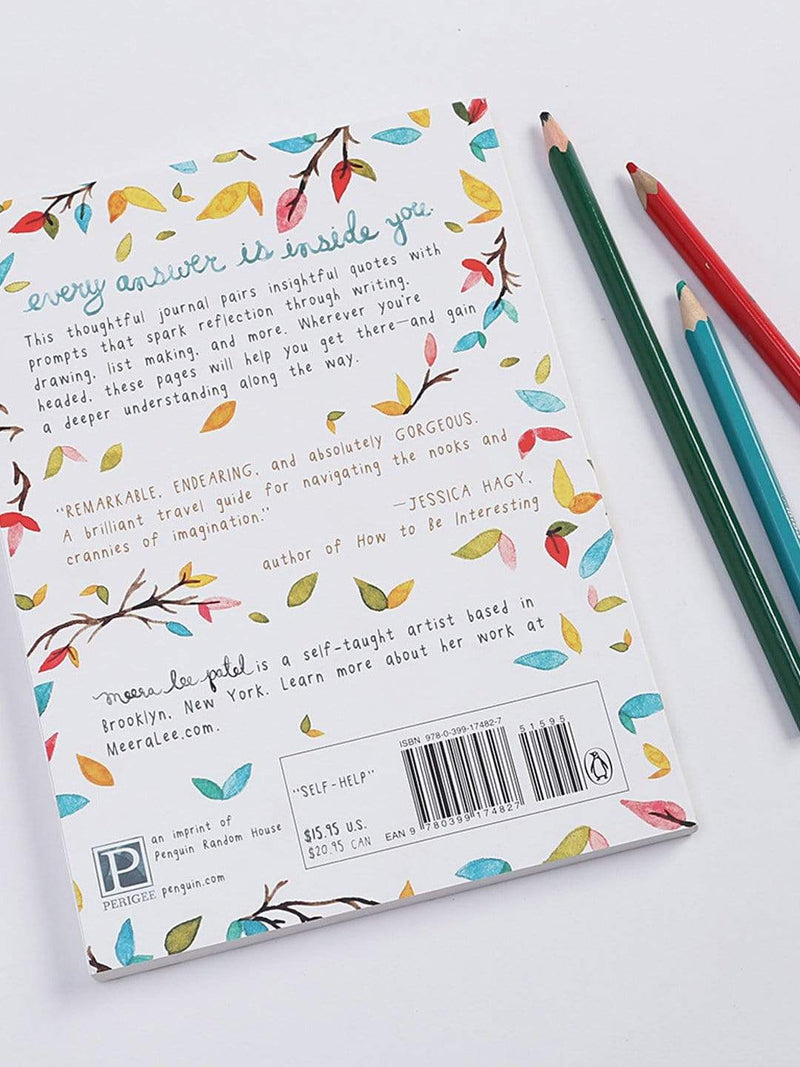 every answer is inside you.
This thoughtful journal pairs insightful quotes with
prompts that spark reflection through writing,
drawing, list making, and more. Wherever you're
headed, these pages will help you get there—and gain
a deeper understanding along the way.
"REMARKABLE, ENDEARING, and absolutely GORGEOUS.
A brilliant travel guide for navigating the nooks and
crannies of imagination."
—JESSICA HAGY,
author of How to Be Interesting
meera lee patel is a self-taught artist based in
Brooklyn, New York. Learn more about her work at
MeeraLee.com.
ISBN 978-0-399-17482-7
51595
"SELF-HELP"
$15.95 U.S.
$20.95 CAN
EAN 9 780399 174827
an imprint of
Penguin Random House
P
PERIGEE penguin.com